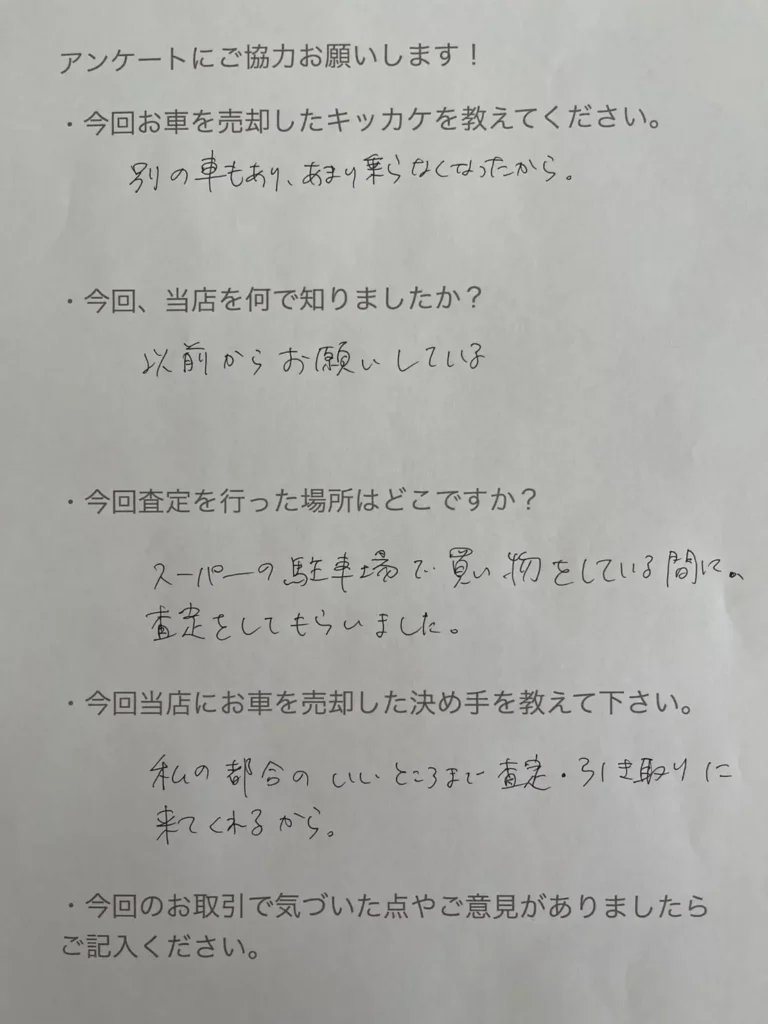 アンケートにご協力お願いします！
・今回お車を売却したキッカケを教えてください。
別の車もあり、あまり乗らなくなったから。
・今回、当店を何で知りましたか？
以前からお願いしている
・今回査定を行った場所はどこですか？
スーパーの駐車場で買い物をしている間に。
査定をしてもらいました。
・今回当店にお車を売却した決め手を教えて下さい。
私の都合のいいところまで査定・引き取りに
来てくれるから。
・今回のお取引で気づいた点やご意見がありましたら
ご記入ください。